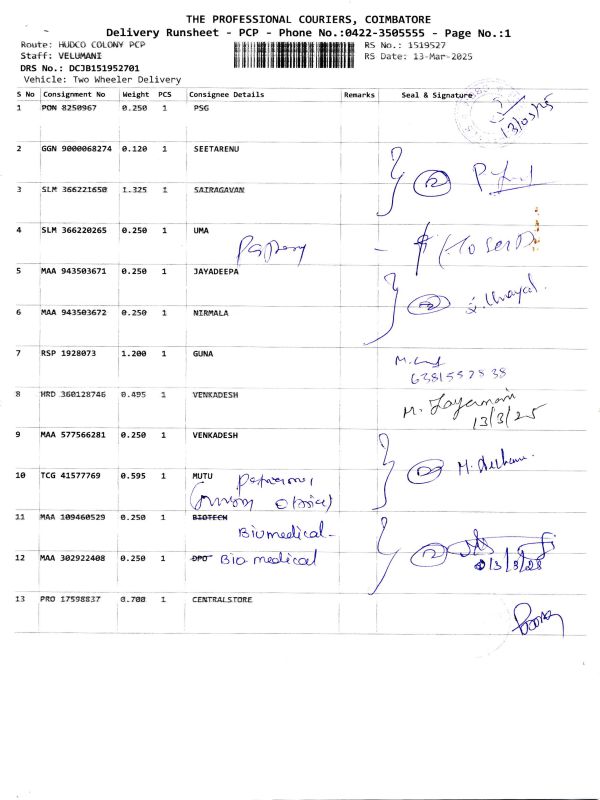 THE PROFESSIONAL COURIERS, COIMBATORE
Delivery Runsheet - PCP - Phone No.:0422-3505555 - Page No.:1
Route: HUDCO COLONY PCP
Staff: VELUMANI
DRS No.: DCJB151952701
Vehicle: Two Wheeler Delivery
RS No.: 1519527
RS Date: 13-Mar-2025
S No Consignment No Weight PCS Consignee Details Remarks Seal & Signature
1 PON 8250967 0.250 1 PSG
13/03/25
2 GGN 9000068274 0.120 1 SEETARENU
2
3 SLM 366221650 1.325 1 SAIRAGAVAN
4 SLM 366220265 0.250 1 UMA
5 MAA 943503671 0.250 1 JAYADEEPA
2
6 MAA 943503672 0.250 1 NIRMALA
7 RSP 1928073 1.200 1 GUNA
8 HRD 360128746 0.495 1 VENKADESH
M. Jayamani
13/3/25
9 MAA 577566281 0.250 1 VENKADESH
10 TCG 41577769 0.595 1 MUTU
11 MAA 109460529 0.250 1 BIOTECH
Biomedical-
2
12 MAA 302922408 0.250 1 DPO Bio medical
13 PRO 17598837 0.700 1 CENTRALSTORE